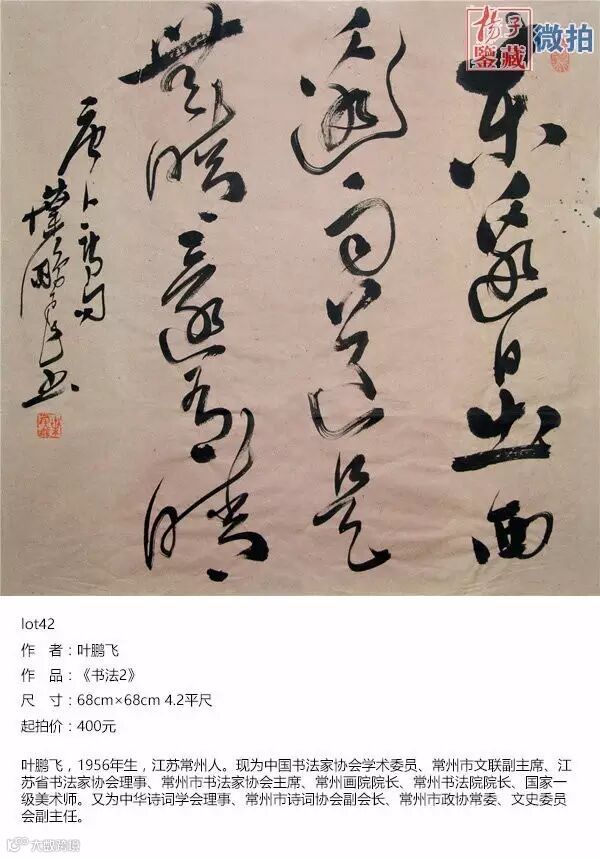 杨子
鑒藏
微拍
東邊日出西
邊雨道是
無晴還有晴
唐人詩句
lot42
作 者：叶鹏飞
作 品：《书法2》
尺 寸：68cm×68cm 4.2平尺
起拍价：400元
叶鹏飞，1956年生，江苏常州人。现为中国书法家协会学术委员、常州市文联副主席、江
苏省书法家协会理事、常州市书法家协会主席、常州画院院长、常州书法院院长、国家一
级美术师。又为中华诗词学会理事、常州市诗词协会副会长、常州市政协常委、文史委员
会副主任。
大数跨境